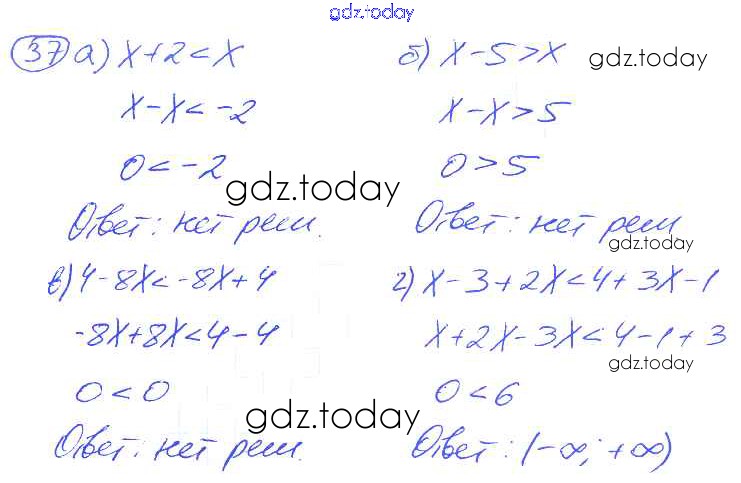 gdz.today
37 а) x+2<x
x-x<-2
0<-2
Ответ: нет реш.
б) x-5>x
x-x>5
0>5
Ответ: нет реш
в) 4-8x<-8x+4
-8x+8x<4-4
0<0
Ответ: нет реш.
г) x-3+2x<4+3x-1
x+2x-3x<4-1+3
0<6
Ответ: (-∞; +∞)
gdz.today
gdz.today
gdz.today
gdz.today
gdz.today